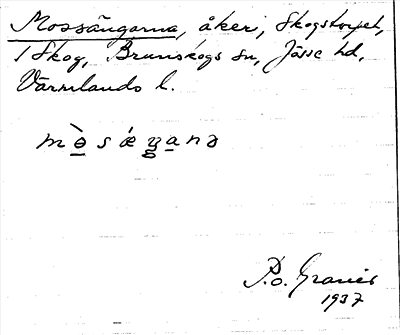 Mossängarna, åker, Skogstorpet,
1 Skog, Brunskogs sn, Jösse hd,
Värmlands l.
P.o. Granér
1937